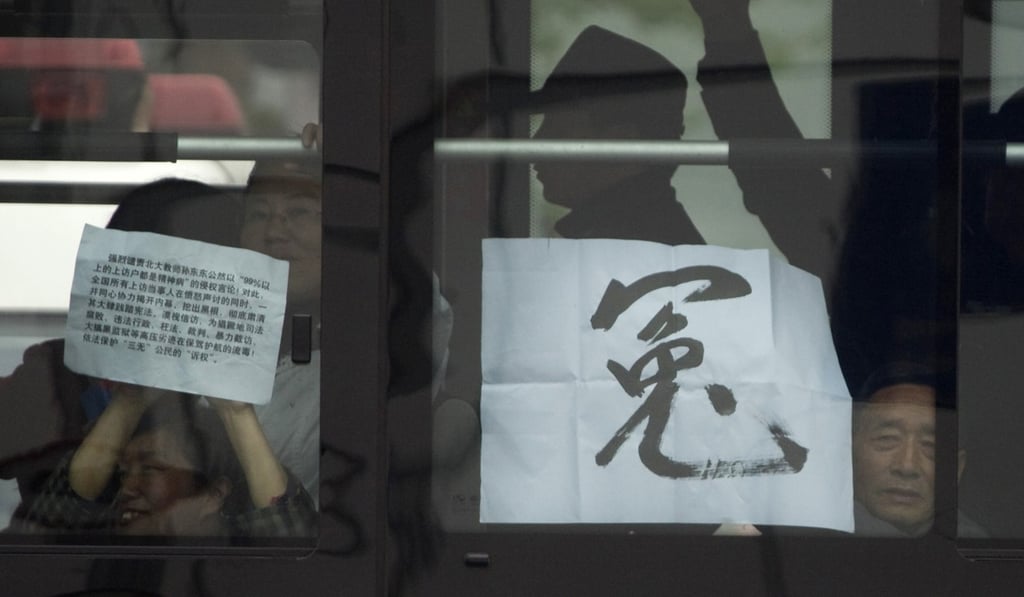 强烈谴责北大教师孙东东公然以“99%以
上的上访户都是精神病”的侵权言论!对此,
全国所有上访当事人在愤怒声讨的同时,一
并同心协力揭开内幕,挖出黑根,彻底肃清
其大肆践踏宪法,漠视信访,为猖獗地司法
腐败、违法行政、枉法、裁判、暴力截访、
大搞黑监狱等高压劣迹在保驾护航的流毒!
依法保护“三无”公民的“诉权”。
冤